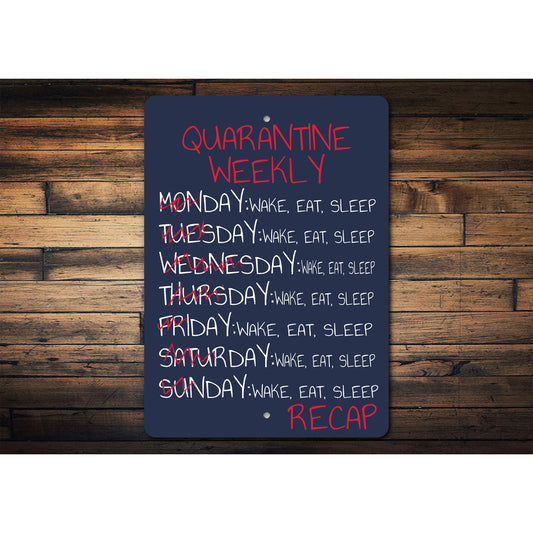 QUARANTINE
WEEKLY
MONDAY:WAKE, EAT, SLEEP
TUESDAY:WAKE, EAT, SLEEP
WEDNESDAY:WAKE, EAT, SLEEP
THURSDAY:WAKE, EAT, SLEEP
FRIDAY:WAKE, EAT, SLEEP
SATURDAY:WAKE, EAT, SLEEP
SUNDAY:WAKE, EAT, SLEEP
RECAP